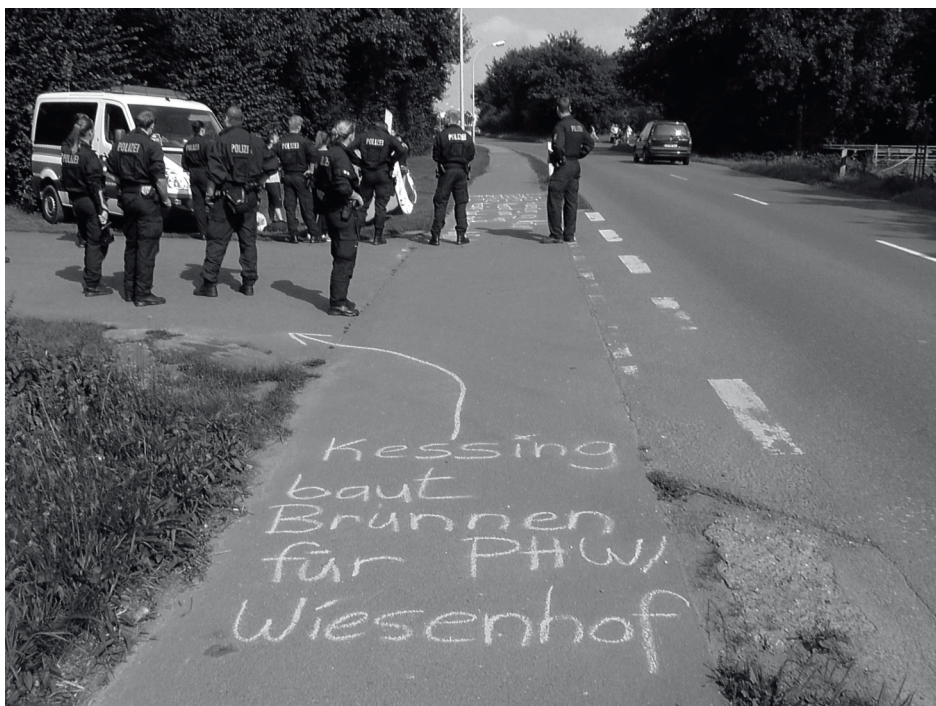 POLIZEI
POLIZEI
POLIZEI
POLIZEI
POLIZEI
POLIZEI
POLIZEI
Kessing
baut
Brunnen
für PHW/
Wiesenhof